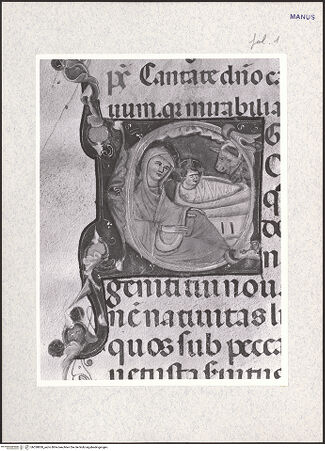 MANUS
fol. 1
ps Cantate dño ca
uum. qr mirabilia
G
C
q
de
n
genitum nou
nē natiuitas h
quos sub pecca
uetusta seruitus